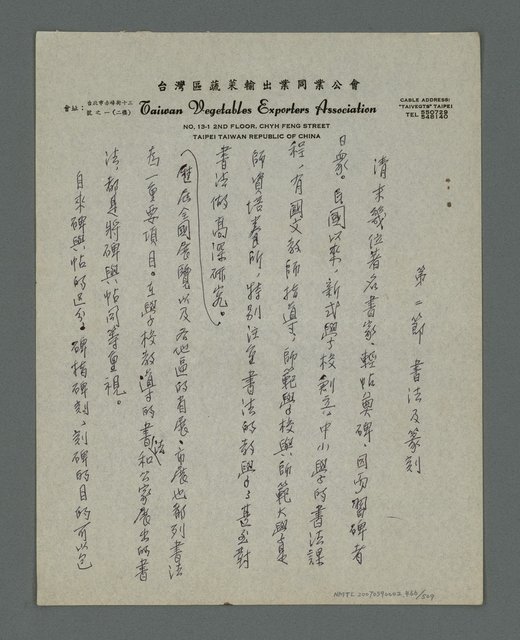 台灣區蔬菜輸出業同業公會
會址：台北市赤峰街十三號之一(二樓)
Taiwan Vegetables Exporters Association
CABLE ADDRESS:
"TAIVEGTS" TAIPEI
TEL 550729
548140
NO. 13-1 2ND FLOOR, CHYH FENG STREET
TAIPEI TAIWAN REPUBLIC OF CHINA
第二節 書法及篆刻
清末幾位著名書家、輕帖奠碑，因而習碑者
日衆。民國以來，新式學校創立，中小學的書法課
程，有國文教師指導，師範學校與師範大學是
師資培養所，特別注重書法的教學，甚至對
書法做高深研究。
歷屆全國展覽以及各地區的省展、市展也都列書法
為一重要項目。在學校教導的書法和公家展出的書
法，都是將碑與帖同等重視。
自來碑與帖的區分。碑指碑刻，刻碑的目的可以包
NMTL 20070390002 466/509